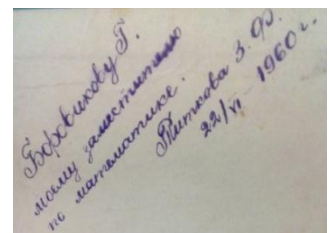 Боровикову Г.
моему заместителю
по математике.
Титкова З. Ф.
22/VI 1960 г.